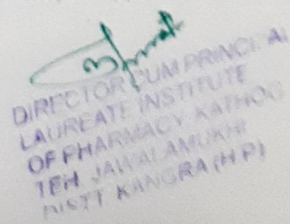 DIRECTOR CUM PRINCIPAL
LAUREATE INSTITUTE
OF PHARMACY KATHOG
TEH JAWALAMUKHI
DISTT KANGRA (H P)